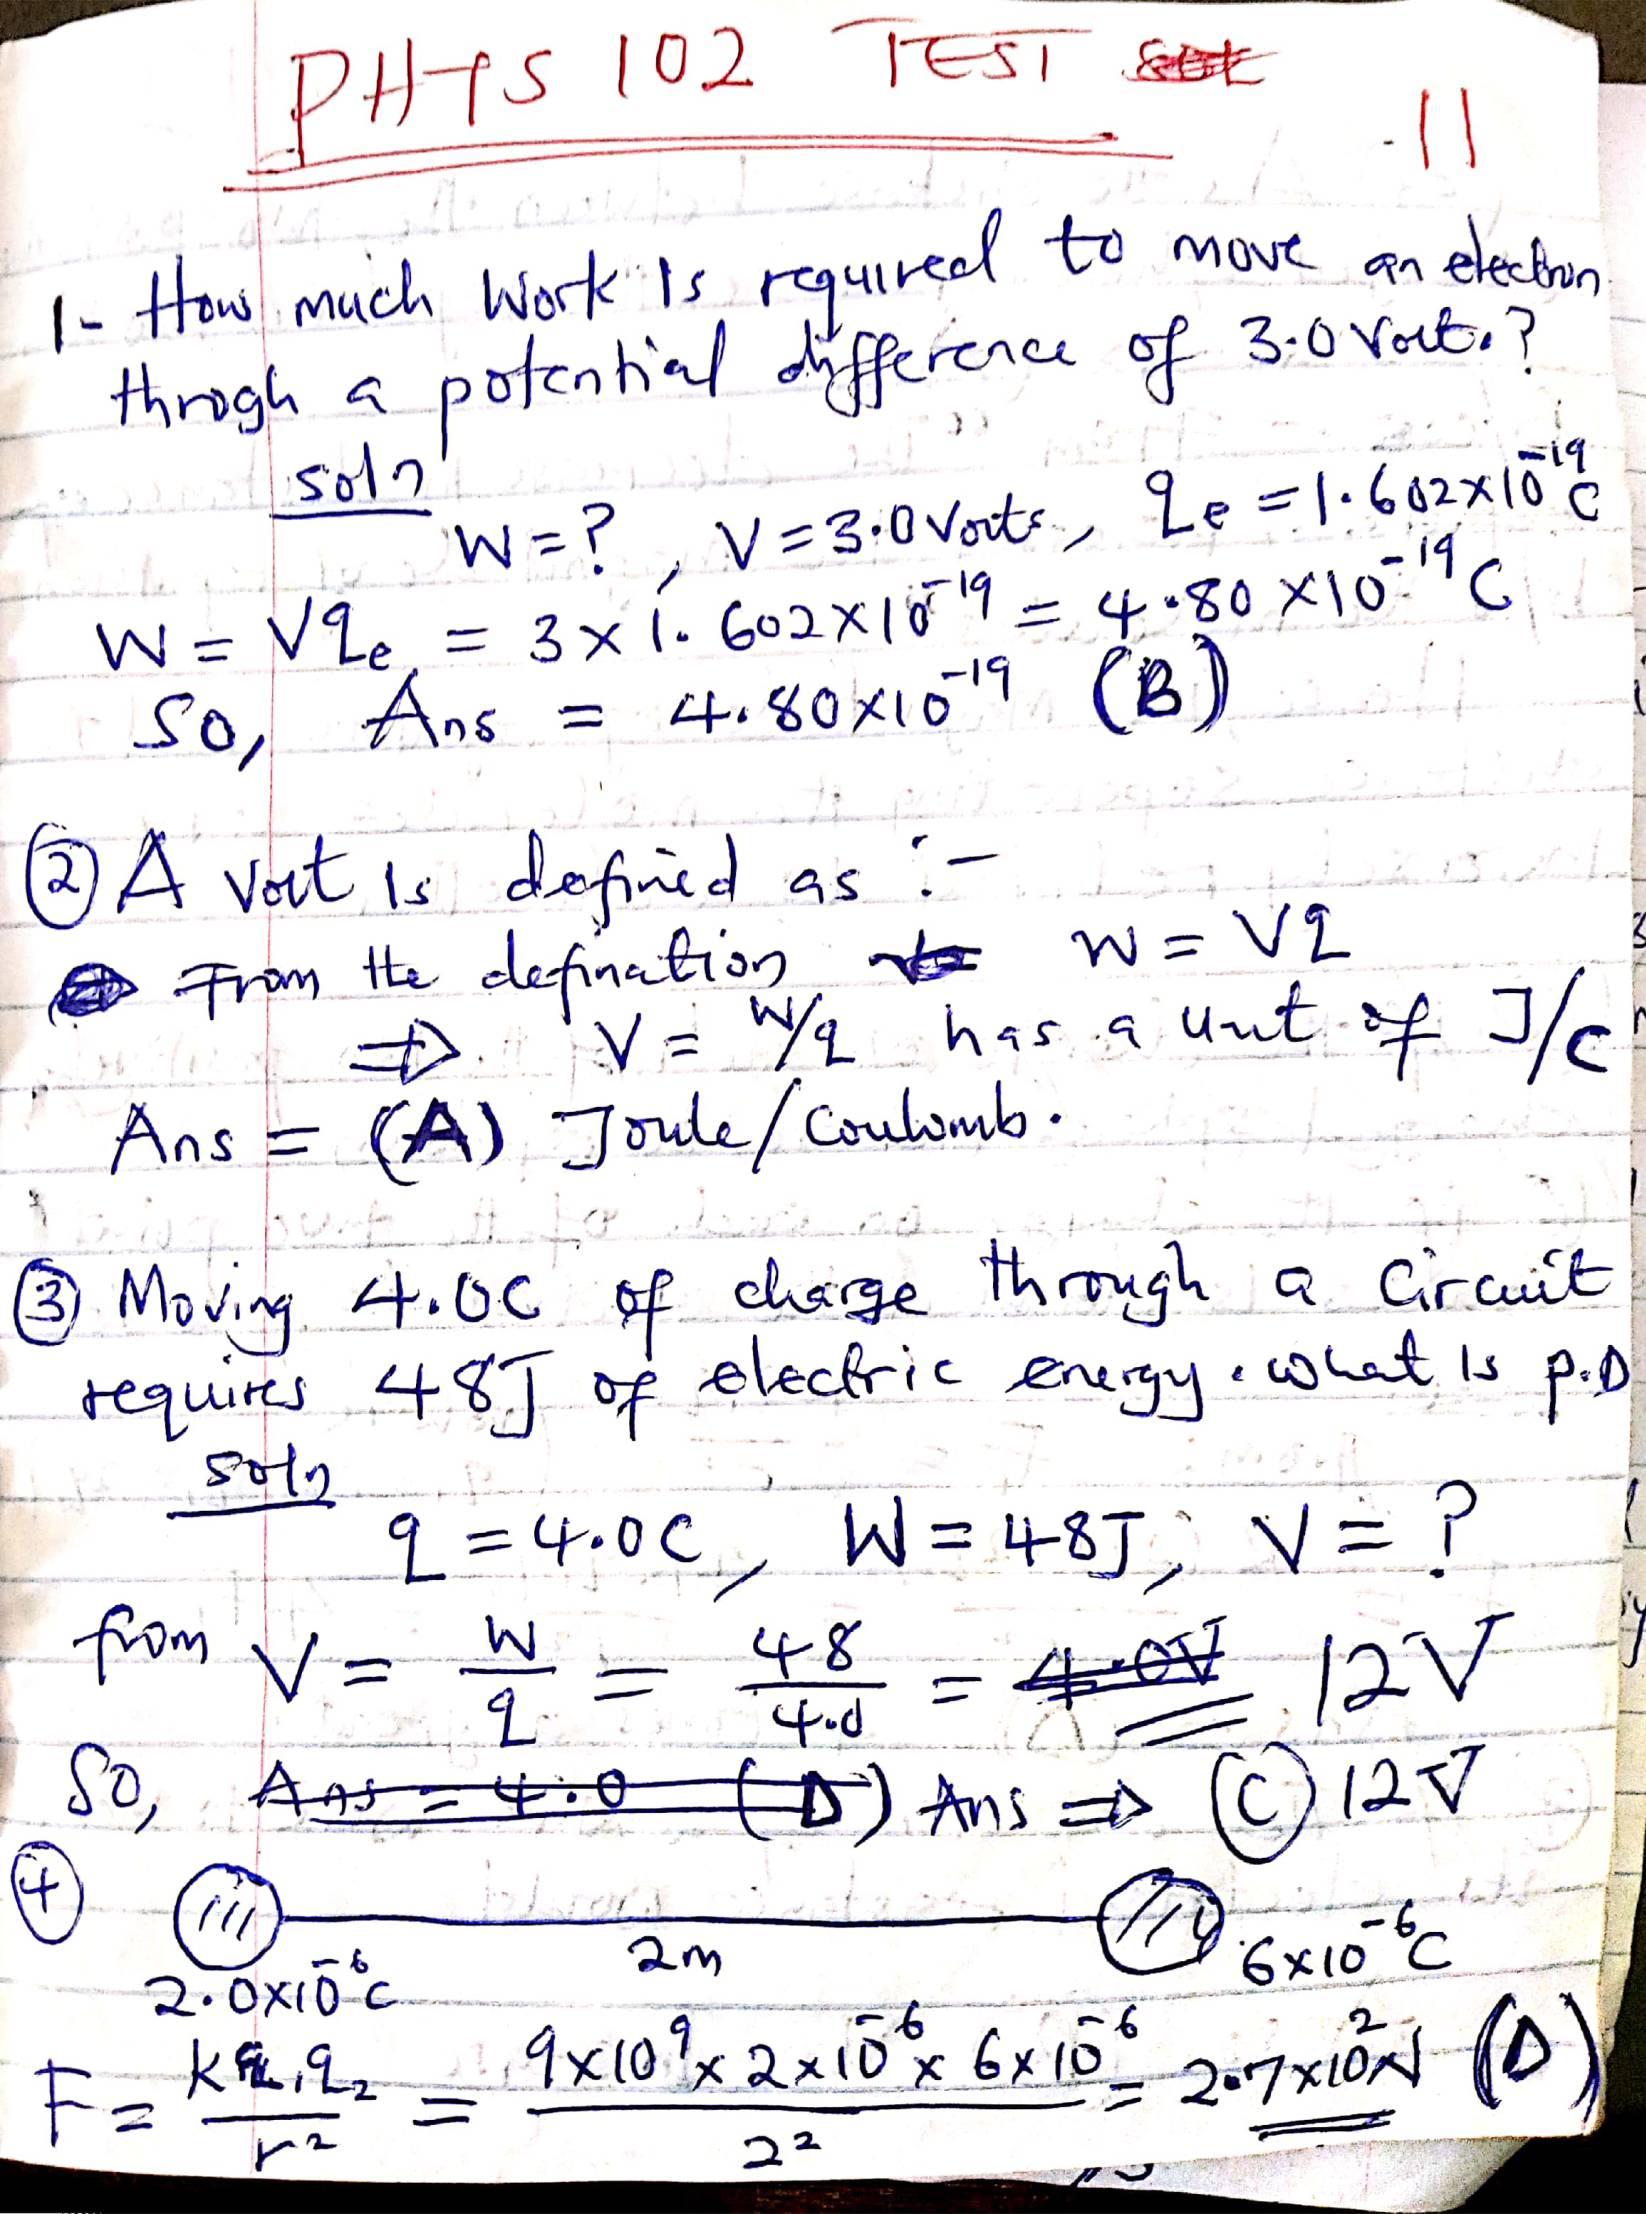 PHYS 102 TEST
11
1- How much Work Is required to move an electron
throgh a potential difference of 3.0 Volt.?
soln
W = ? , V = 3.0 Volts, qe = 1.602x10^-19 C
W = Vqe = 3 x 1.602x10^-19 = 4.80 x10^-19 C
So, Ans = 4.80x10^-19 (B)
② A Volt Is defined as :-
From the defination W = Vq
⇒ V = W/q has a unit of J/C
Ans = (A) Joule/Coulomb.
③ Moving 4.0C of charge through a Circuit
requires 48J of electric energy. what Is p.D
soln
q = 4.0C, W = 48J, V = ?
from V = W/q = 48/4.0 = 4.0V 12V
So, Ans = 4.0 (D) Ans ⇒ (C) 12V
④
2m
2.0x10^-6 C 6x10^-6 C
F = kq1q2/r^2 = 9x10^9 x 2x10^-6 x 6x10^-6 / 2^2 = 2.7x10^2 N (D)